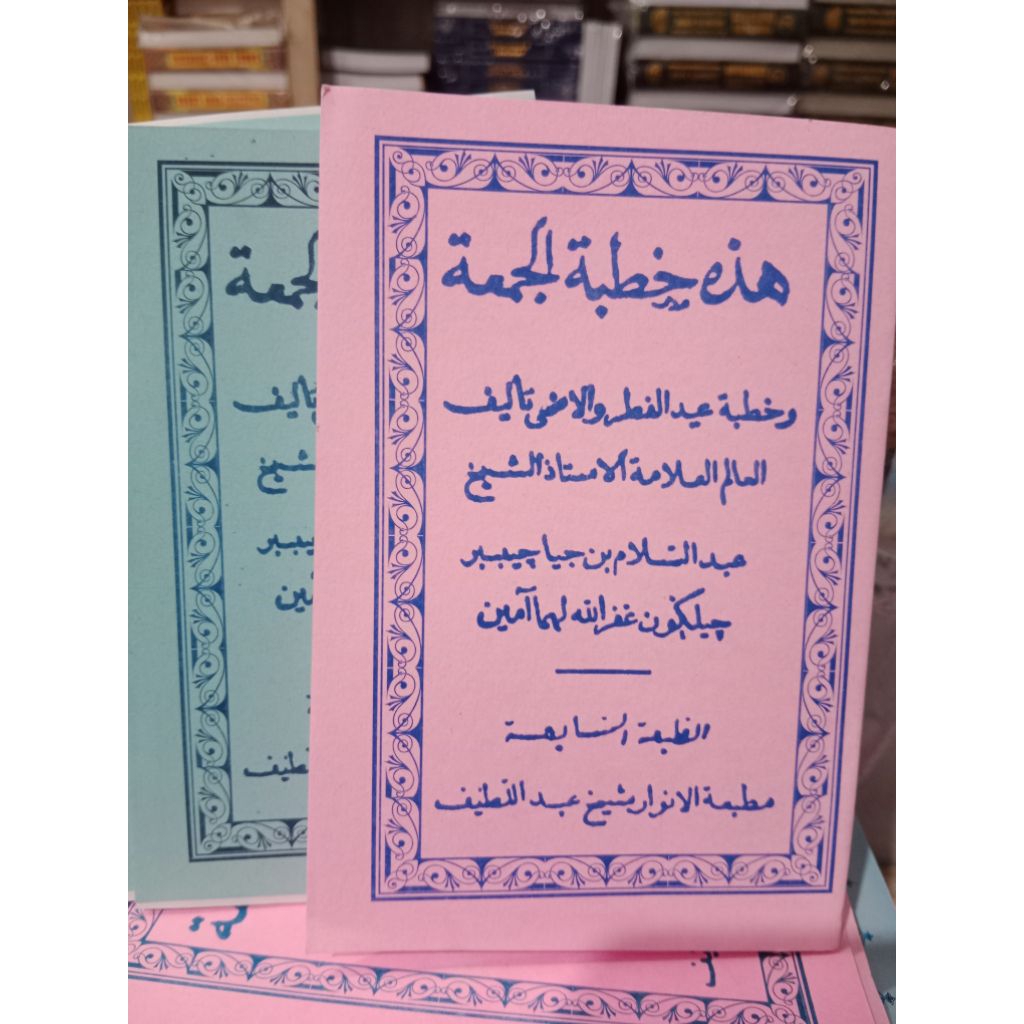 هذه خطبة الجمعة
وخطبة عيد الفطر والاضحى تأليف
العالم العلامة الاستاذ الشيخ
عبد السلام بن جيا چيببر
چيلڮون غفر الله لهما آمين
الطبعة السابعة
مطبعة الانوار شيخ عبد اللطيف
الجمعة
تأليف
الشيخ
چيببر
آمين
اللطيف